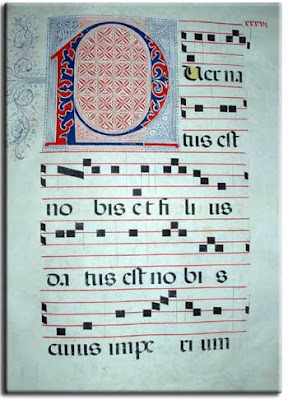 XXXVI
Puer na
tus est
no bis et fi li us
da tus est no bi s
cuius impe ri um